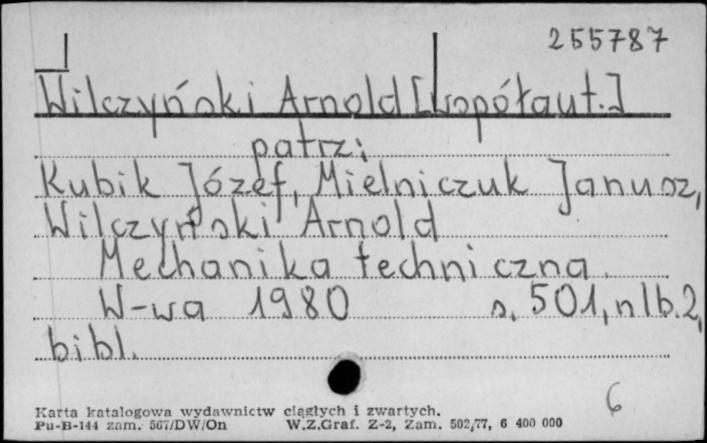 255787
Wilczyński Arnold [współaut.]
patrz:
Kubik Józef, Mielniczuk Janusz,
Wilczyński Arnold
Mechanika techniczna.
W-wa 1980 s. 501, nlb. 2,
bibl.
6
Karta katalogowa wydawnictw ciągłych i zwartych.
Pu-B-144 zam. 567/DW/On W.Z.Graf. Z-2, Zam. 502/77, 6 400 000